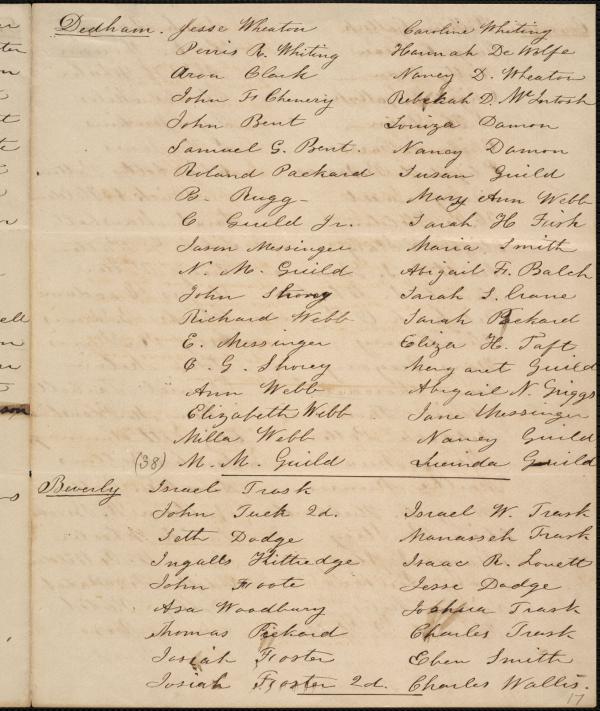 Dedham. Jesse Wheaton Caroline Whiting
Perris R. Whiting Hannah De Wolfe
Aron Clark Nancy D. Wheaton
John F. Chenery Rebekah D. McIntosh
John Bent Louiza Damon
Samuel G. Bent. Nancy Damon
Roland Packard Susan Guild
B. Rugg Mary Ann Webb
C. Guild Jr. Sarah H Fisk
Jason Messinger Maria Smith
N. M. Guild Abigail F. Balch
John Sarah S. Crane
Richard Webb Sarah Packard
E. Messinger Eliza H. Taft
C. G. Shorey Margaret Guild
Ann Webb Abigail N. Griggs
Elizabeth Webb Jane Messinger
Milla Webb Nancy Guild
(38) M. M. Guild Lucinda Guild
Beverly Israel Trask
John Tuck 2d. Israel W. Trask
Seth Dodge Manasseh Trask
Ingalls Kittredge Isaac R. Lovett
John Foote Jesse Dodge
Asa Woodbury Joshua Trask
Thomas Pickard Charles Trask
Josiah Foster Eben Smith
Josiah Foster 2d. Charles Wallis.
17